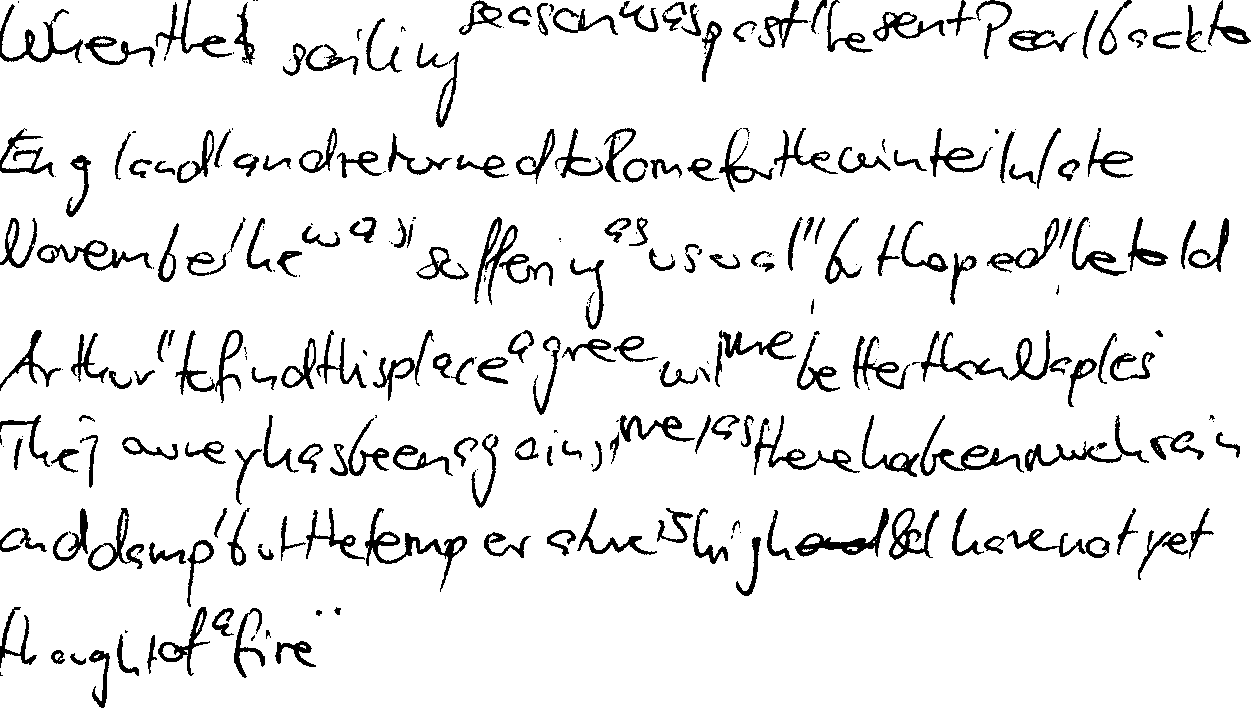 When the sailing season was past, he sent Pearl back to
England, and returned to Rome for the winter. In late
November he was suffering as usual, "but hoped," he told
Arthur, "to find this place agree with me better than Naples.
The journey has been against me, as there has been much rain
and damp, but the temperature is high & I have not yet
thought of a fire."